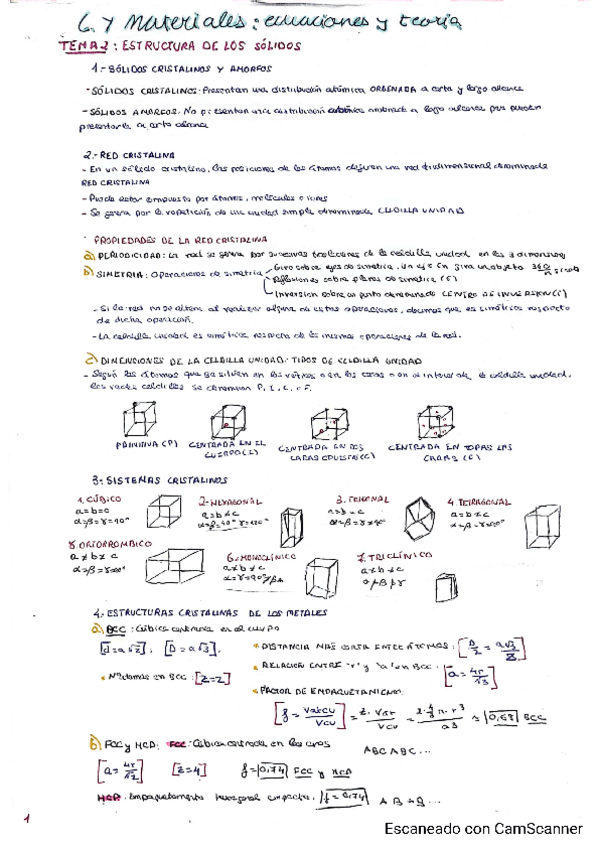 C. y Materiales: ecuaciones y teoría
TEMA 2: ESTRUCTURA DE LOS SÓLIDOS
1.- SÓLIDOS CRISTALINOS Y AMORFOS
- SÓLIDOS CRISTALINOS: Presentan una distribución atómica ORDENADA a corto y largo alcance
- SÓLIDOS AMORFOS: No presentan una distribución atómica ordenada a largo alcance pero pueden
presentarla a corto alcance
2.- RED CRISTALINA
- En un sólido cristalino, las posiciones de los átomos definen una red tridimensional denominada
RED CRISTALINA
- Puede estar compuesta por átomos, moléculas o iones
- Se genera por la repetición de una unidad simple denominada CELDILLA UNIDAD
PROPIEDADES DE LA RED CRISTALINA
a) PERIODICIDAD: La red se genera por sucesivas traslaciones de la celdilla unidad en las 3 dimensiones
b) SIMETRIA: Operaciones de simetría
Giro sobre ejes de simetría. Un eje Cn gira un objeto 360/n
Reflexiones sobre planos de simetría (σ)
Inversion sobre un punto denominado CENTRO DE INVERSION (i)
- Si la red no se altera al realizar alguna de estas operaciones, decimos que es simétrica respecto
de dicha operación.
- La celdilla unidad es simétrica respecto de las mismas operaciones de la red.
c) DIMENSIONES DE LA CELDILLA UNIDAD: TIPOS DE CELDILLA UNIDAD
- Según los átomos que se sitúen en los vértices o en las caras o en el interior de la celdilla unidad,
las celdillas se denominan P, I, C, o F.
PRIMITIVA (P)
CENTRADA EN EL
CUERPO (I)
CENTRADA EN DOS
CARAS OPUESTAS (C)
CENTRADA EN TODAS LAS
CARAS (F)
3.- SISTEMAS CRISTALINOS
1. CÚBICO
a=b=c
α=β=γ=90°
2- HEXAGONAL
a=b≠c
α=β=90° γ=120°
3. TRIGONAL
a=b=c
α=β=γ≠90°
4. TETRAGONAL
a=b≠c
α=β=γ=90°
5. ORTORROMBICO
a≠b≠c
α=β=γ=90°
6. MONOCLÍNICO
a≠b≠c
α=γ=90°≠β
7. TRICLÍNICO
a≠b≠c
α≠β≠γ
4.- ESTRUCTURAS CRISTALINAS DE LOS METALES
a) BCC: Cúbica centrada en el cuerpo
[d=a√2]. [D=a√3].
* DISTANCIA MAS CORTA ENTRE ATOMOS: [D/2 = a√3/2]
* RELACION ENTRE "r" y "a" en BCC: [a = 4r/√3]
* Nº átomos en BCC: [Z=2]
* FACTOR DE EMPAQUETAMIENTO:
[f = Vatcu/Vcu] = z·Vat/Vcu = 2·4/3 π·r³/a³ = 0,68 BCC
b) FCC y HCP. FCC: Cúbica centrada en las caras
ABC ABC...
[a = 4r/√2] [Z=4] f=0,74 FCC y HCP
HCP: Empaquetamiento hexagonal compacto. f=0,74 AB AB...
1
Escaneado con CamScanner